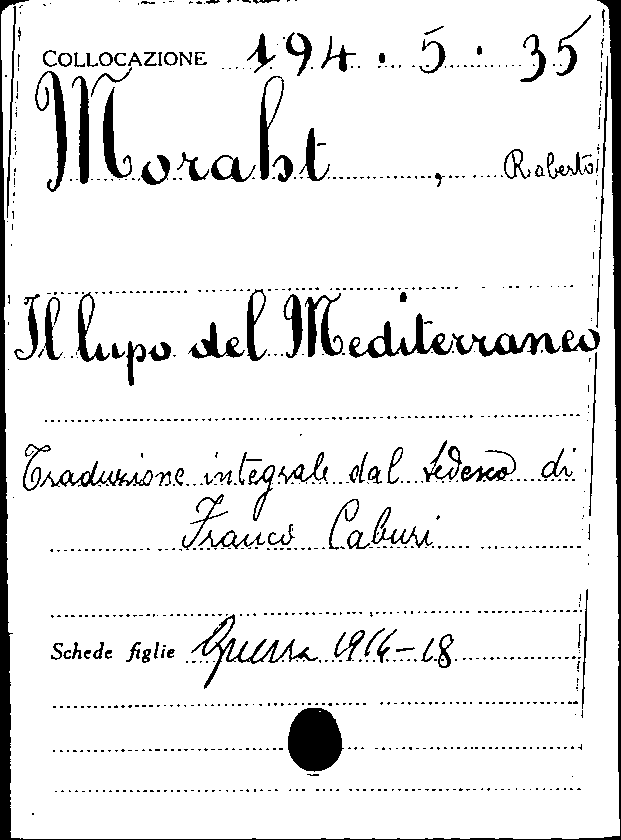 COLLOCAZIONE 194 . 5 . 35
Moraht , Roberto
Il lupo del Mediterraneo
Traduzione integrale dal tedesco di
Franco Caburi
Schede figlie Guerra 1914-18